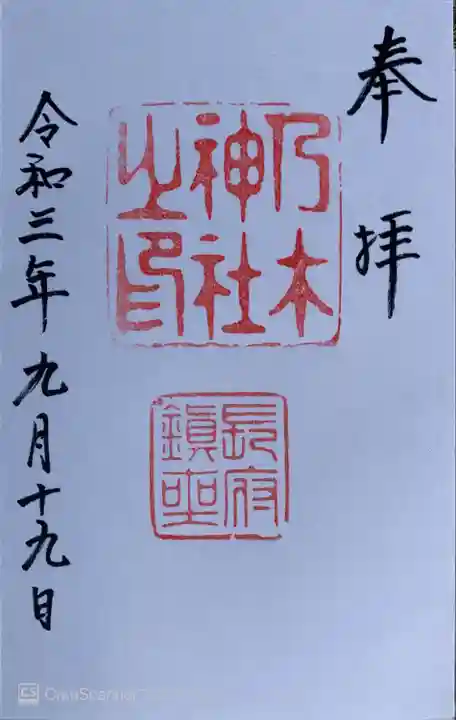 奉拝
乃木
神社
之印
長府
鎮坐
令和三年九月十九日
CS CamScanner